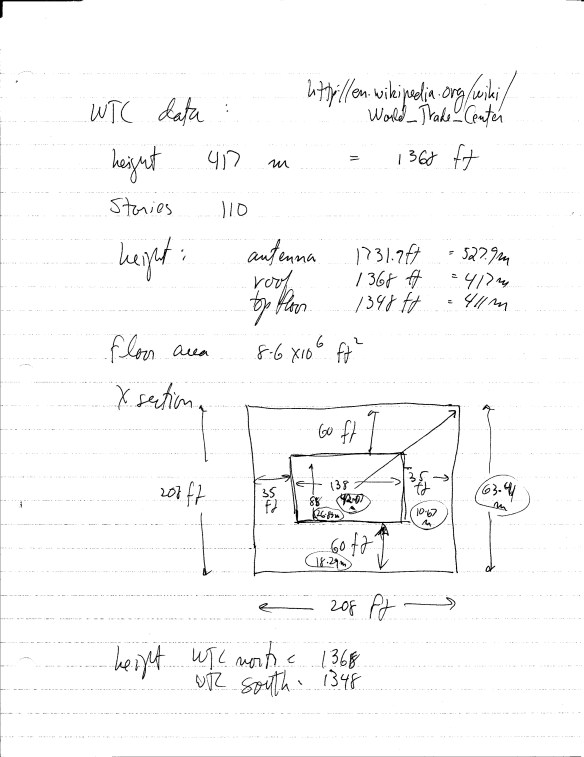 http://en.wikipedia.org/wiki/
World_Trade_Center
WTC data :
height 417 m = 1368 ft
Stories 110
height : antenna 1731.9 ft = 527.9 m
roof 1368 ft = 417 m
top floor 1348 ft = 411 m
floor area 8.6 x10⁶ ft²
X section
60 ft
208 ft
35 ft
138
42.07 m
88
26.83 m
35 ft
10.67 m
63.41 m
60 ft
18.29 m
208 ft
height WTC north = 1368
WTC south = 1348